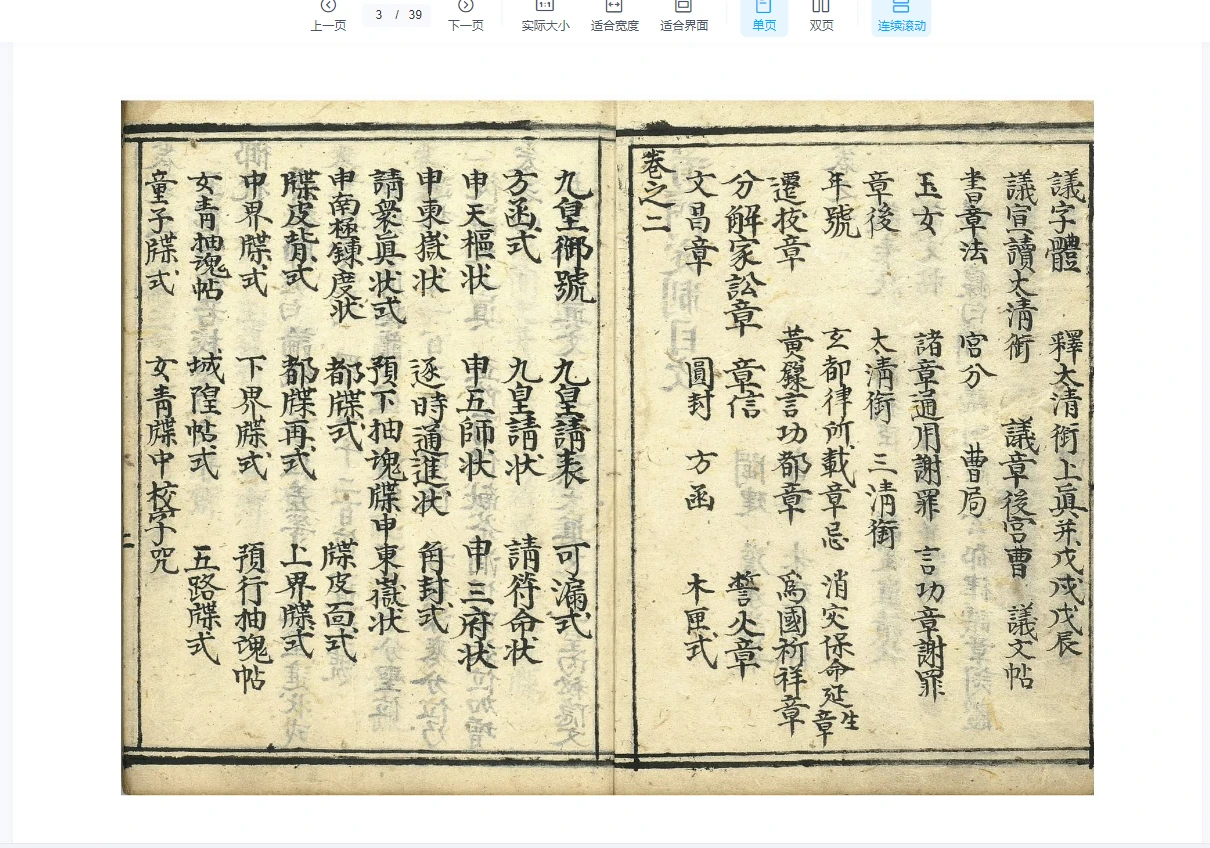 上一页
3 / 39
下一页
1:1
实际大小
适合宽度
适合界面
单页
双页
连续滚动
議字體 釋太清銜上眞并戊戌戊辰
議宣讀太清銜 議章後宮曹 議文帖
書章法 宮分 曹局
玉女 諸章通用謝罪 言功章謝罪
章後 太清銜 三清銜
年號 玄都律所載章忌 消灾保命延生章
遷拔章 黃籙言功都章 爲國祈祥章
分解家訟章 章信 誓火章
文昌章 圓封 方函 木匣式
卷之二
九皇御號 九皇請表 可漏式
方函式 九皇請状 請符命状
申天樞状 申五師状 申三府状
申東嶽状 逐時通進状 角封式
請衆眞状式 預下抽魂牒申東嶽状
申南極錬度状 都牒式 牒皮面式
牒皮背式 都牒再式 上界牒式
中界牒式 下界牒式 預行抽魂帖
女青抽魂帖 城隍帖式 五路牒式
童子牒式 女青牒中挍孛咒